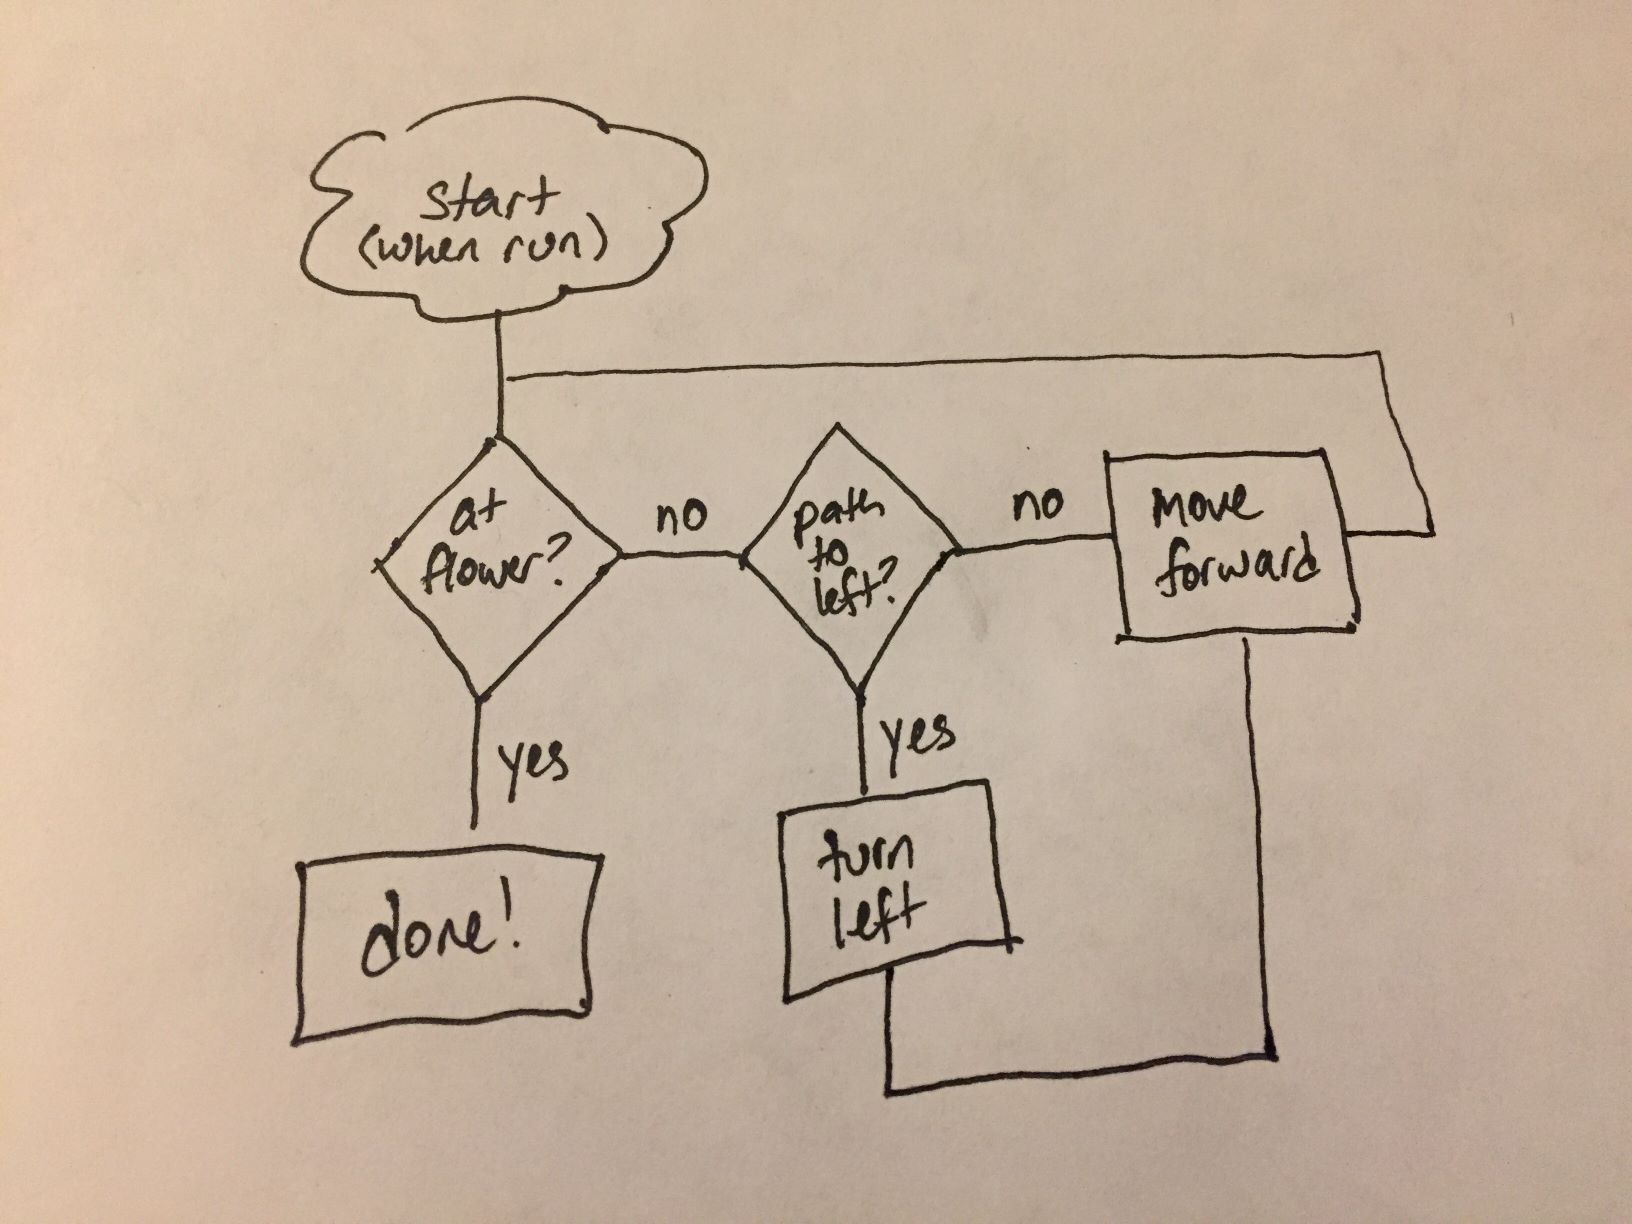 start
(when run)
at
flower?
no
path
to
left?
no
move
forward
yes
yes
turn
left
done!